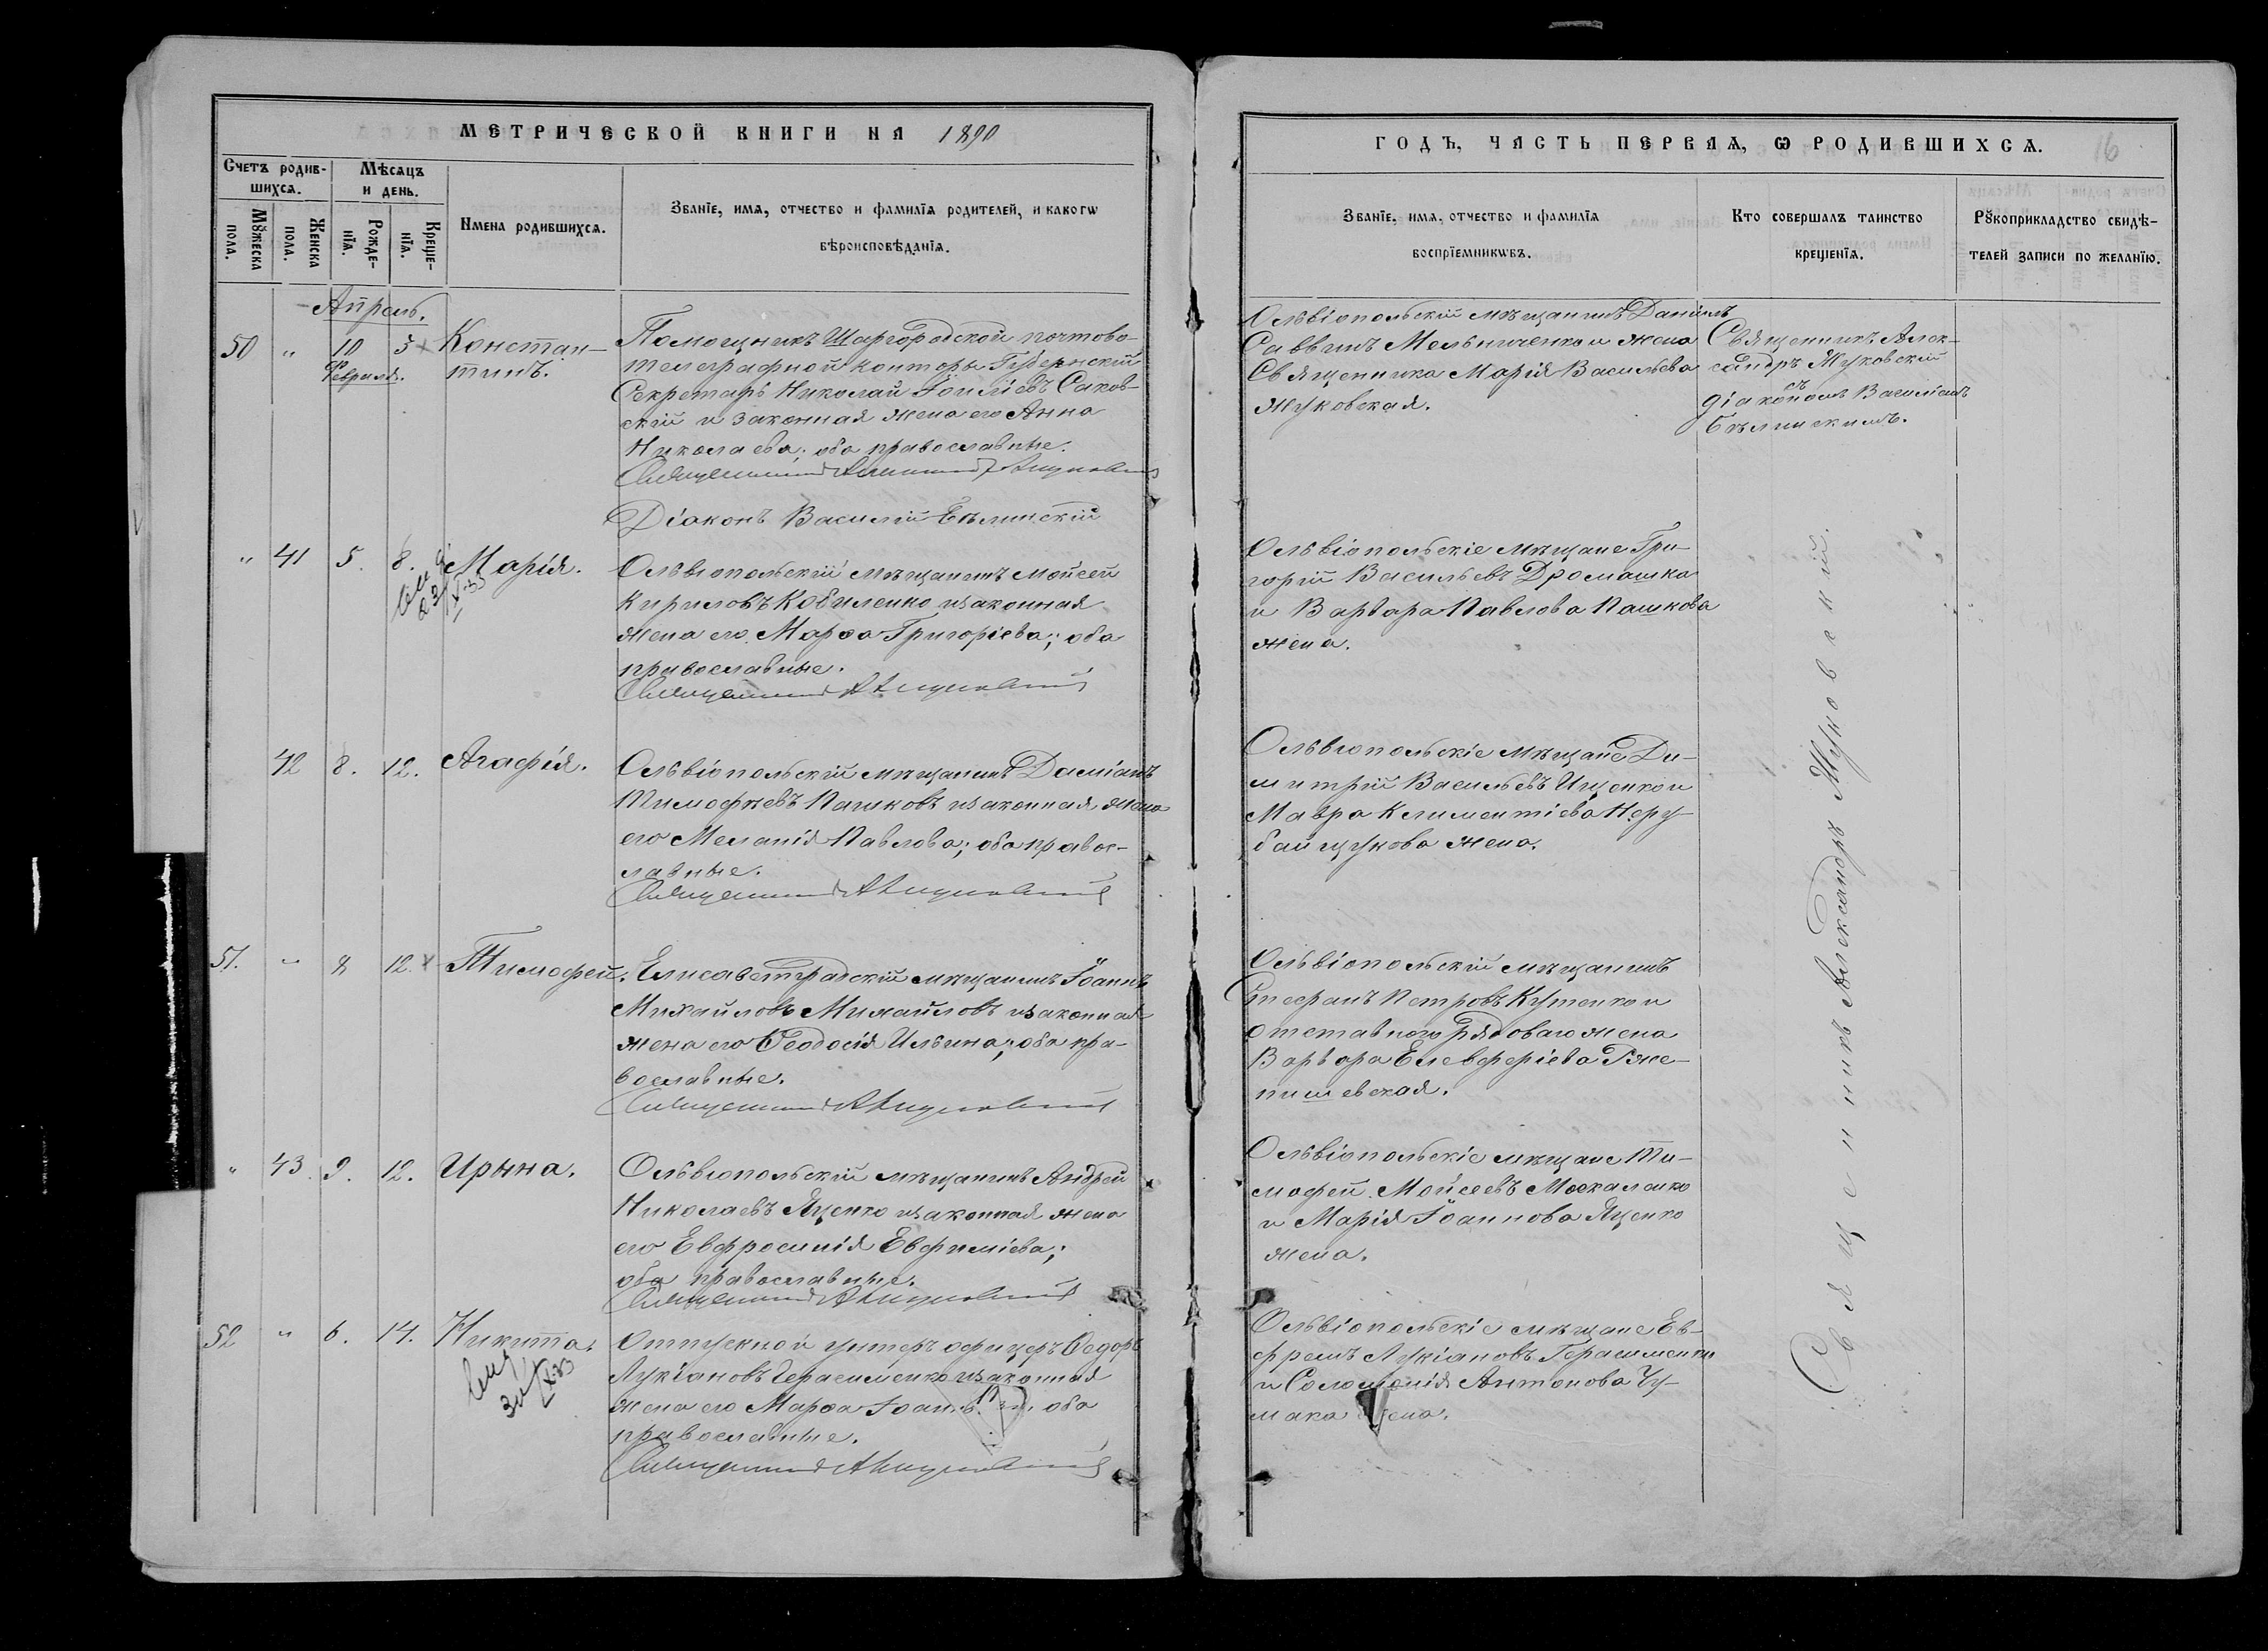 МЕТРИЧЕСКОЙ КНИГИ НА 1890
Счетъ родив-
шихся.
Мѣсяцъ
и день.
Мꙋжеска
пола.
Женска
пола.
Рожде-
нїя.
Креще-
нїя.
Имена родившихся.
Званїе, имя, отчество и фамилїя родителей, и какогѡ
вѣроисповѣданїя.
Апрель.
50 " 10 5 Констан-
Февраля. тинъ.
Помощникъ Шаргородской почтово-
телеграфной конторы Губернскій
Секретарь Николай Саков-
скій и законная жена его Анна
Николаева; оба православные.
Священникъ Александръ Жуковскій
Діаконъ Василій Бѣлинскій
" 41 5. 8. Марія.
Ольвіопольскій мѣщанинъ Мойсей
Кириловъ Кобиленко и законная
жена его Марѳа Григоріева; оба
православные.
Священникъ А Жуковскій
42 8. 12. Агафія.
Ольвіопольскій мѣщанинъ Даміанъ
Тимофѣевъ Пашковъ и законная жена
его Меланія Павлова; оба право-
славные.
Священникъ А Жуковскій
51. " 8 12. Тимофей.
Елисаветградскій мѣщанинъ Іоаннъ
Михайловъ Михайловъ и законная
жена его Ѳеодосія Ильина; оба пра-
вославные.
Священникъ А Жуковскій
" 43. 9. 12. Ирына.
Ольвіопольскій мѣщанинъ Андрей
Николаевъ Яценко и законная жена
его Евфросинія Евфиміева;
оба православные.
Священникъ А Жуковскій
52 " 6. 14. Никита.
Отпускной унтеръ офицеръ Ѳедоръ
Лукіановъ Герасименко и законная
жена его Марѳа оба
православные.
Священникъ А Жуковскій
ГОДЪ, ЧАСТЬ ПЕРВАЯ, Ѡ РОДИВШИХСЯ. 16
Званїе, имя, отчество и фамилїя
воспрїемникѡвъ.
Кто совершалъ таинство
крещенїя.
Рꙋкоприкладство свидѣ-
телей записи по желанїю.
Ольвіопольскій мѣщанинъ Даніилъ
Саввинъ Мельниченко и жена
Священника Марія Васильева
Жуковская.
Священникъ Алек-
сандръ Жуковскій
съ
діакономъ Василіемъ
Бѣлинскимъ.
Ольвіопольскіе мѣщане Гри-
горій Васильевъ Дромашка
и Варвара Павлова Пашкова
жена.
Ольвіопольскіе мѣщане Ди-
митрій Васильевъ Ищенко и
Мавра Климентіева Неру-
байщукова жена.
Ольвіопольскій мѣщанинъ
Стефанъ Петровъ Кутенко и
отставного рядоваго жена
Варвара Елевферіева Рже-
пишевская.
Ольвіопольскіе мѣщане Ти-
мофей Мойсеевъ Москаленко
и Марія Іоаннова Яценко
жена.
Ольвіопольскіе мѣщане Ев-
фремъ Лукіановъ Герасименко
и Соломонія Антонова Чу-
мака жена.
Священникъ Александръ Жуковскій.